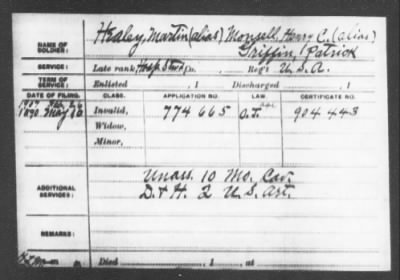 Healey, Martin (alias) Monsell, Henry C. (alias)
NAME OF SOLDIER: Griffin, Patrick
SERVICE: Late rank, Hosp. Stwd Co. , Reg't U.S.A.
TERM OF SERVICE: Enlisted , 1 Discharged , 1
DATE OF FILING. CLASS. APPLICATION NO. LAW. CERTIFICATE NO.
1890 May 26 Invalid, 774665 O.I. 904443
Widow,
Minor,
ADDITIONAL SERVICES: Unass. 10 Mo. Cav.
D. & H. 2 U.S. Art.
REMARKS:
Died , 1 , at